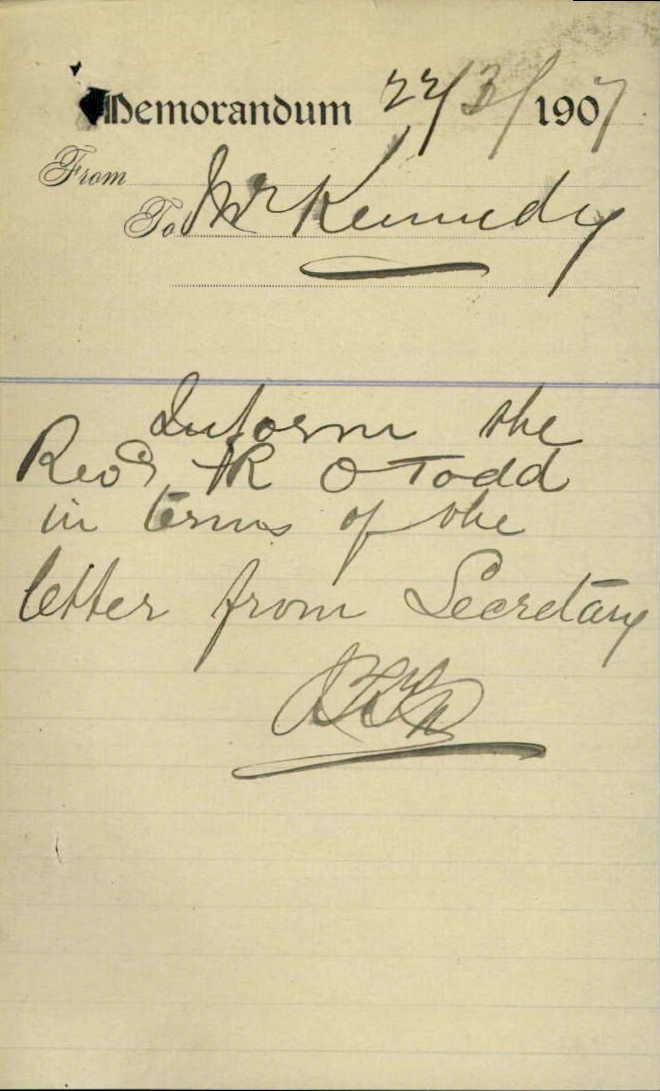 Memorandum 22/3/1907
From
To Mr Kennedy
Inform the
Revd R O Todd
in terms of the
letter from Secretary